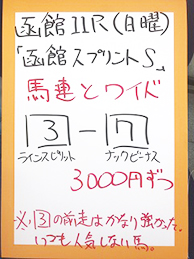 函館11R(日曜)
「函館スプリントS」
馬連とワイド
3-7
ラインスピリット ナックビーナス
3000円ずつ
※,3の前走はかなり強かった。
いつも人気しない馬。